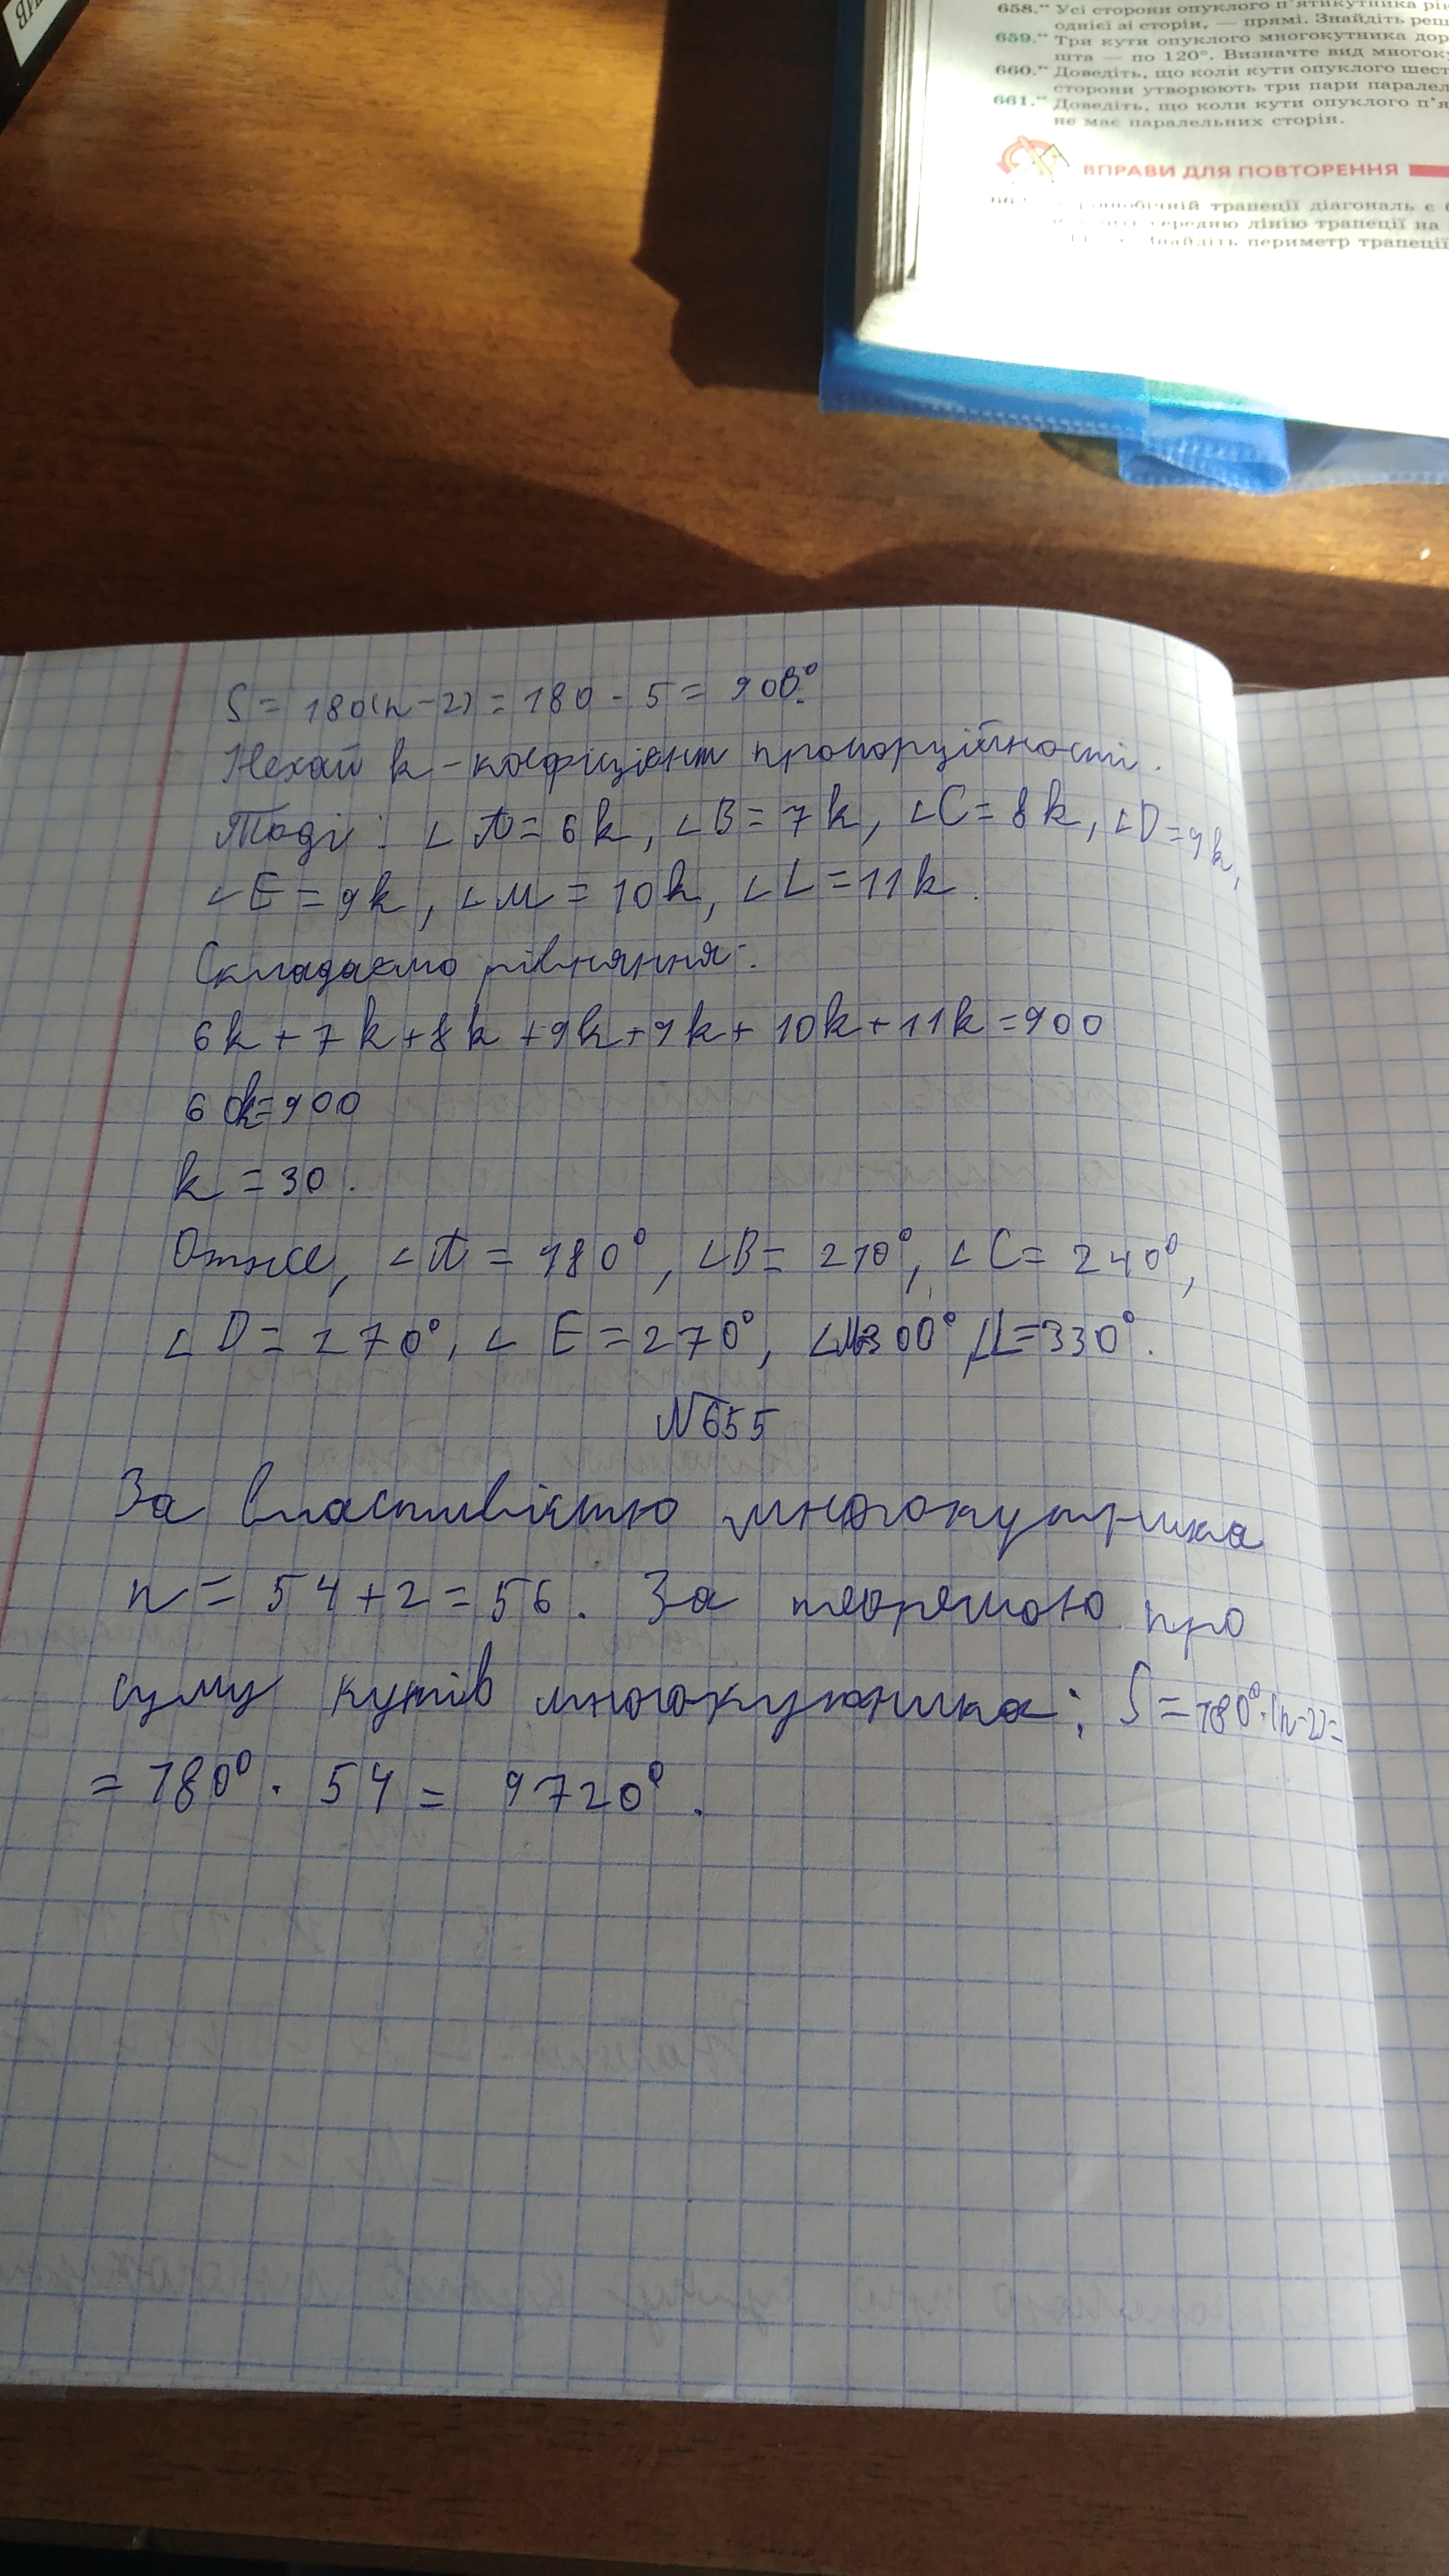 658.•• Усі сторони опуклого п'ятикутника рів
однієї зі сторін, — прямі. Знайдіть реш
659.•• Три кути опуклого многокутника дор
шта — по 120°. Визначте вид многоку
660.•• Доведіть, що коли кути опуклого шест
сторони утворюють три пари паралел
661.•• Доведіть, що коли кути опуклого п'я
не має паралельних сторін.
ВПРАВИ ДЛЯ ПОВТОРЕННЯ
трапеції діагональ є
середню лінію трапеції на
Знайдіть периметр трапеції
S = 180(n-2) = 180 · 5 = 900°.
Нехай k - коефіцієнт пропорційності.
Тоді: ∠A = 6k, ∠B = 7k, ∠C = 8k, ∠D = 9k,
∠E = 9k, ∠M = 10k, ∠L = 11k.
Складаємо рівняння:
6k + 7k + 8k + 9k + 9k + 10k + 11k = 900
60k = 900
k = 30.
Отже, ∠A = 180°, ∠B = 210°, ∠C = 240°,
∠D = 270°, ∠E = 270°, ∠M=300°, ∠L=330°.
№655
За властивістю многокутника
n = 54 + 2 = 56. За теоремою про
суму кутів многокутника: S = 180°·(n-2)=
= 180° · 54 = 9720°.